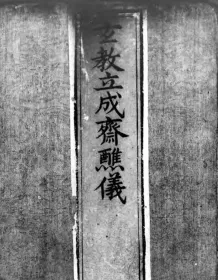 玄教立成齋醮儀